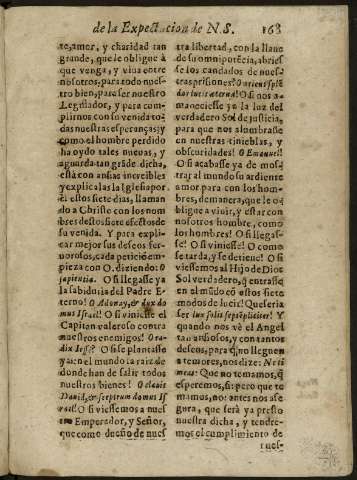 de la Expectacion de N.S. 168
te, amor, y charidad tan
grande, que le obligue à
que venga, y viva entre
nosotros, para todo nues-
tro bien, para ser nuestro
Legislador, y para cum-
plirnos con su venida to-
das nuestras esperanças; y
como el hombre perdido
ha oydo tales nuevas, y
aguarda tan grãde dicha,
està con ansias increibles
y explicalas la Iglesia por
estos siete dias, llaman
do a Christo con los nom
bres destos siete efectos de
su venida. Y para expli-
car mejor sus deseos fer-
vorosos, cada peticiõ em-
pieza con O. diziendo: O
sapientia. O si llegasse ya
la sabiduria del Padre E-
terno! O Adonay, & dux do-
mus Israel! O si viniesse el
Capitan valeroso contra
nuestros enemigos! O ra-
dix Iesse! O si se plantasse
ya en el mundo la raiz de
donde han de salir todos
nuestros bienes! O clavis
David, & sceptrum domus Is
rael! O si viessemos a nues
tro Emperador, y Señor,
que como dueño de nues
tra libertad, con la llave
de su omnipotẽcia, abries
se los candados de nues-
tras prisiones! O oriens splẽ
dor lucis æternæ! O si nos a-
maneciesse ya la luz del
verdadero Sol de justicia,
para que nos alumbrasse
en nuestras tinieblas, y
obscuridades! O Emanuel!
O si acabasse ya de mos-
trar al mundo su ardiente
amor para con los hom-
bres, de manera, que le o-
bligue a vivir, y estar con
nosotros hombre, como
los hombres! O si llegas-
se! O si viniesse! O como
se tarda, y se detiene! O si
viessemos al Hijo de Dios
Sol verdadero, q̃ entrasse
en el mũdo cõ estos siete
modos de lucir! Que seria
ser lux solis septẽpliciter! Y
quando nos vè el Angel
tan ansiosos, y con tantos
deseos, para q̃ no lleguen
a temores, nos dize: Ne ti
meas: Que no temamos, q̃
esperemos, si: pero que te
mamos, no: antes nos ase
gura, que serà ya presto
nuestra dicha, y tendre-
mos el cumplimiento de
nues-